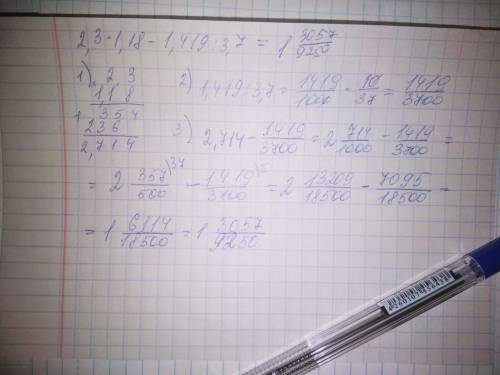 2,3·1,18 - 1,419:3,7 = 1 3057/9250
1) × 2 3
1,1 8
+ 3 5 4
2 3 6
2,7 1 4
2) 1,419:3,7 = 1419/1000 · 10/37 = 1419/3700
3) 2,714 - 1419/3700 = 2 714/1000 - 1419/3700 =
= 2 357/500 - 1419/3700 = 2 13209/18500 - 7095/18500 =
= 1 6114/18500 = 1 3057/9250